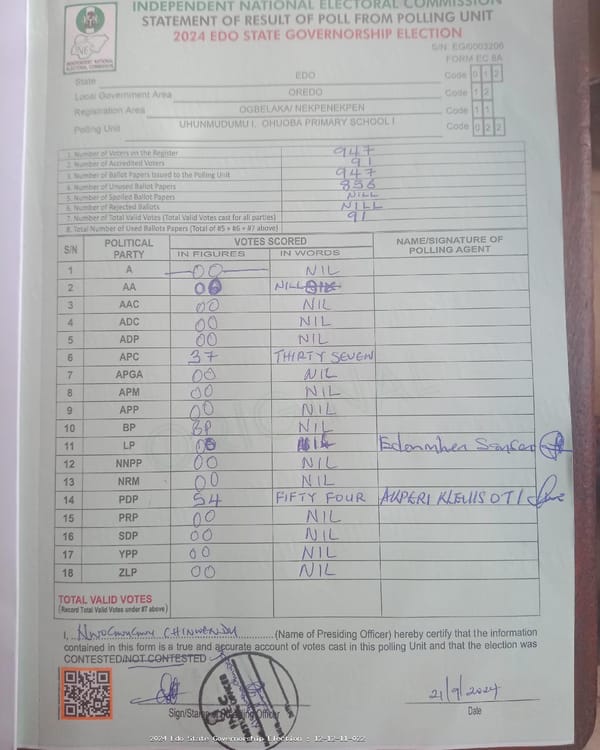 INDEPENDENT NATIONAL ELECTORAL COMMISSION
STATEMENT OF RESULT OF POLL FROM POLLING UNIT
2024 EDO STATE GOVERNORSHIP ELECTION
S/N: EG/0003206
FORM EC 8A
INEC
INDEPENDENT NATIONAL ELECTORAL COMMISSION
State EDO Code 0 1 2
Local Government Area OREDO Code 1 2
Registration Area OGBELAKA/ NEKPENEKPEN Code 1 1
Polling Unit UHUNMUDUMU I, OHUOBA PRIMARY SCHOOL I Code 0 2 2
1. Number of Voters on the Register 947
2. Number of Accredited Voters 91
3. Number of Ballot Papers Issued to the Polling Unit 947
4. Number of Unused Ballot Papers 856
5. Number of Spoiled Ballot Papers NILL
6. Number of Rejected Ballots NILL
7. Number of Total Valid Votes (Total Valid Votes cast for all parties) 91
8. Total Number of Used Ballots Papers (Total of #5 + #6 + #7 above)
S/N POLITICAL PARTY VOTES SCORED NAME/SIGNATURE OF POLLING AGENT
IN FIGURES IN WORDS
1 A 00 NIL
2 AA 00 NILL
3 AAC 00 NIL
4 ADC 00 NIL
5 ADP 00 NIL
6 APC 37 THIRTY SEVEN
7 APGA 00 NIL
8 APM 00 NIL
9 APP 00 NIL
10 BP BP NIL
11 LP
12 NNPP 00 NIL
13 NRM 00 NIL
14 PDP 54 FIFTY FOUR AKPERI
15 PRP 00 NIL
16 SDP 00 NIL
17 YPP 00 NIL
18 ZLP 00 NIL
TOTAL VALID VOTES
(Record Total Valid Votes under #7 above)
I, CHINWENDU (Name of Presiding Officer) hereby certify that the information
contained in this form is a true and accurate account of votes cast in this polling Unit and that the election was
CONTESTED/NOT CONTESTED
21/9/2024
Sign/Stamp of Presiding Officer Date
2024 Edo State Governorship Election : 12-12-11-022